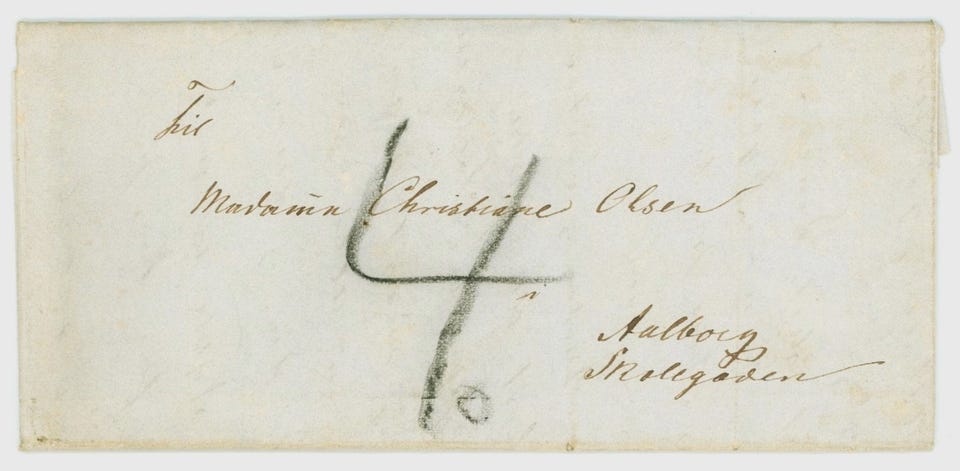 Til
Madame Christiane Olsen
i
Aalborg
Skolegaden
4